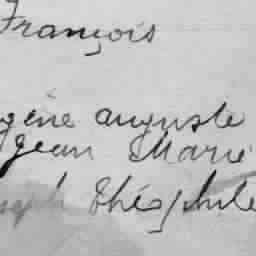 François
gène auguste
Jean Marie
ph théophile